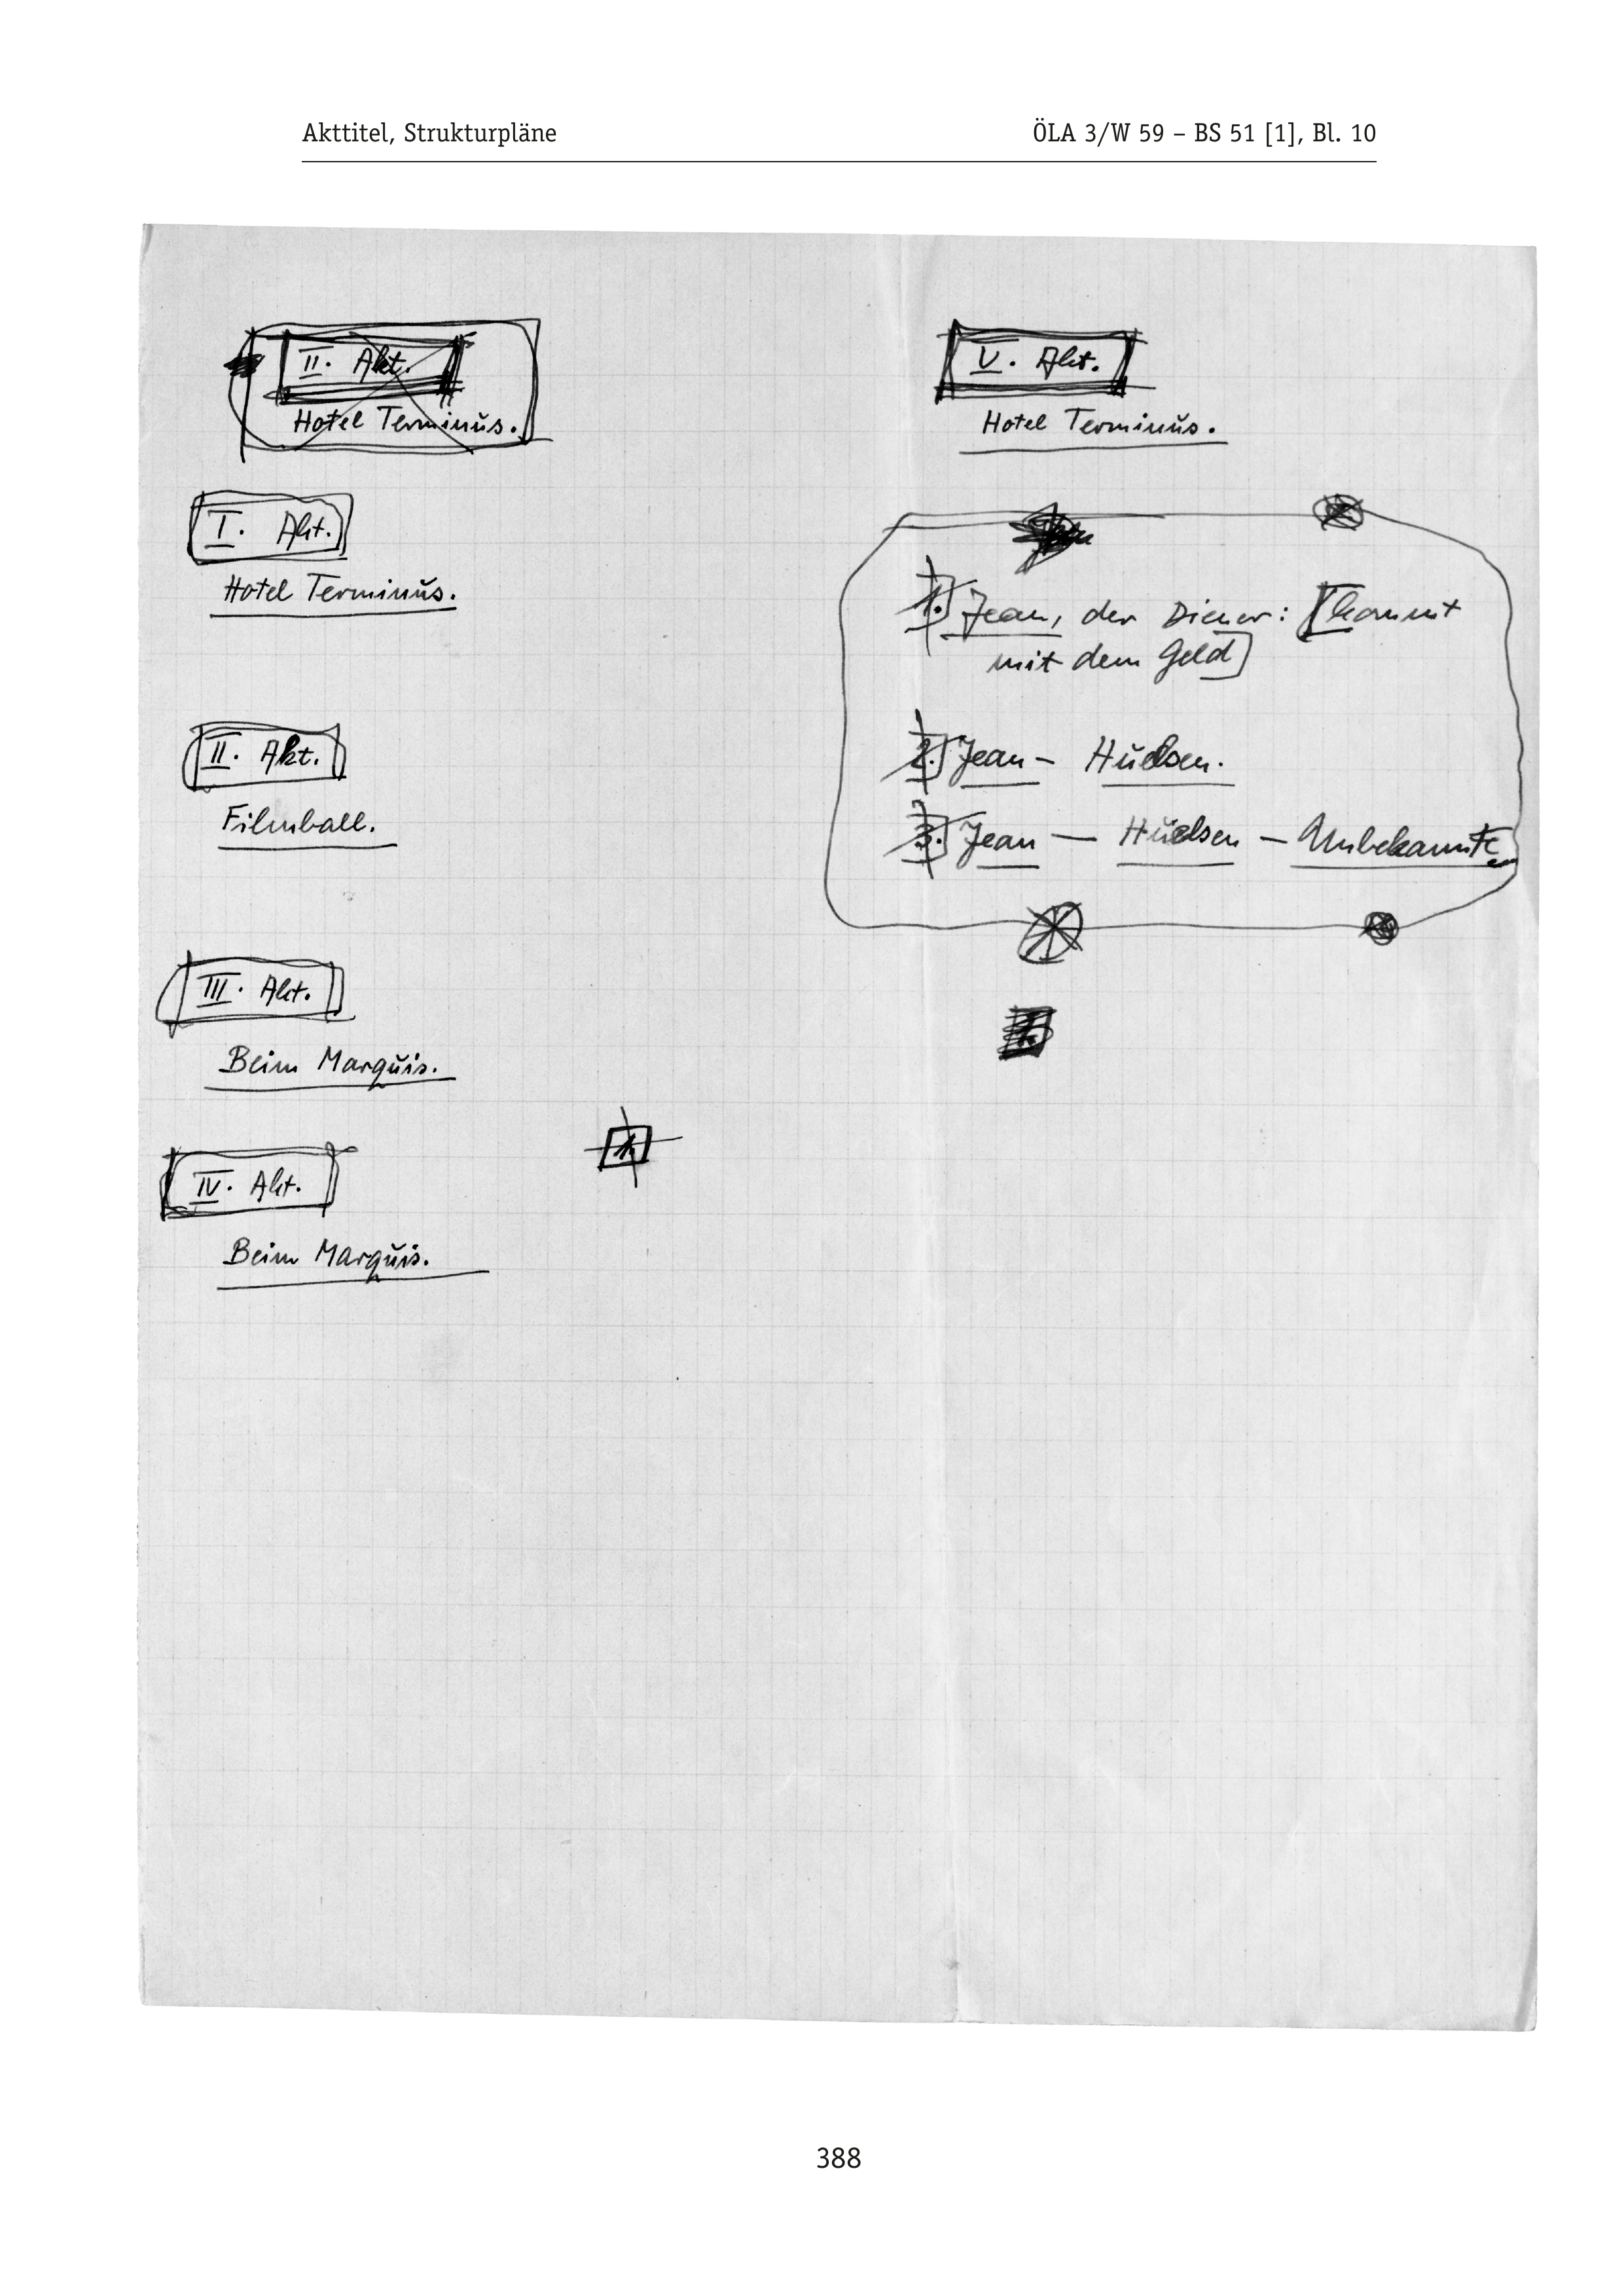 Akttitel, Strukturpläne
ÖLA 3/W 59 – BS 51 [1], Bl. 10
II. Akt.
Hotel Terminus.
I. Akt.
Hotel Terminus.
II. Akt.
Filmball.
III. Akt.
Beim Marquis.
IV. Akt.
Beim Marquis.
1.
V. Akt.
Hotel Terminus.
1.] Jean, der Diener: [kommt
mit dem Geld]
2.] Jean – Huelsen.
3.] Jean – Huelsen – Unbekannte
388